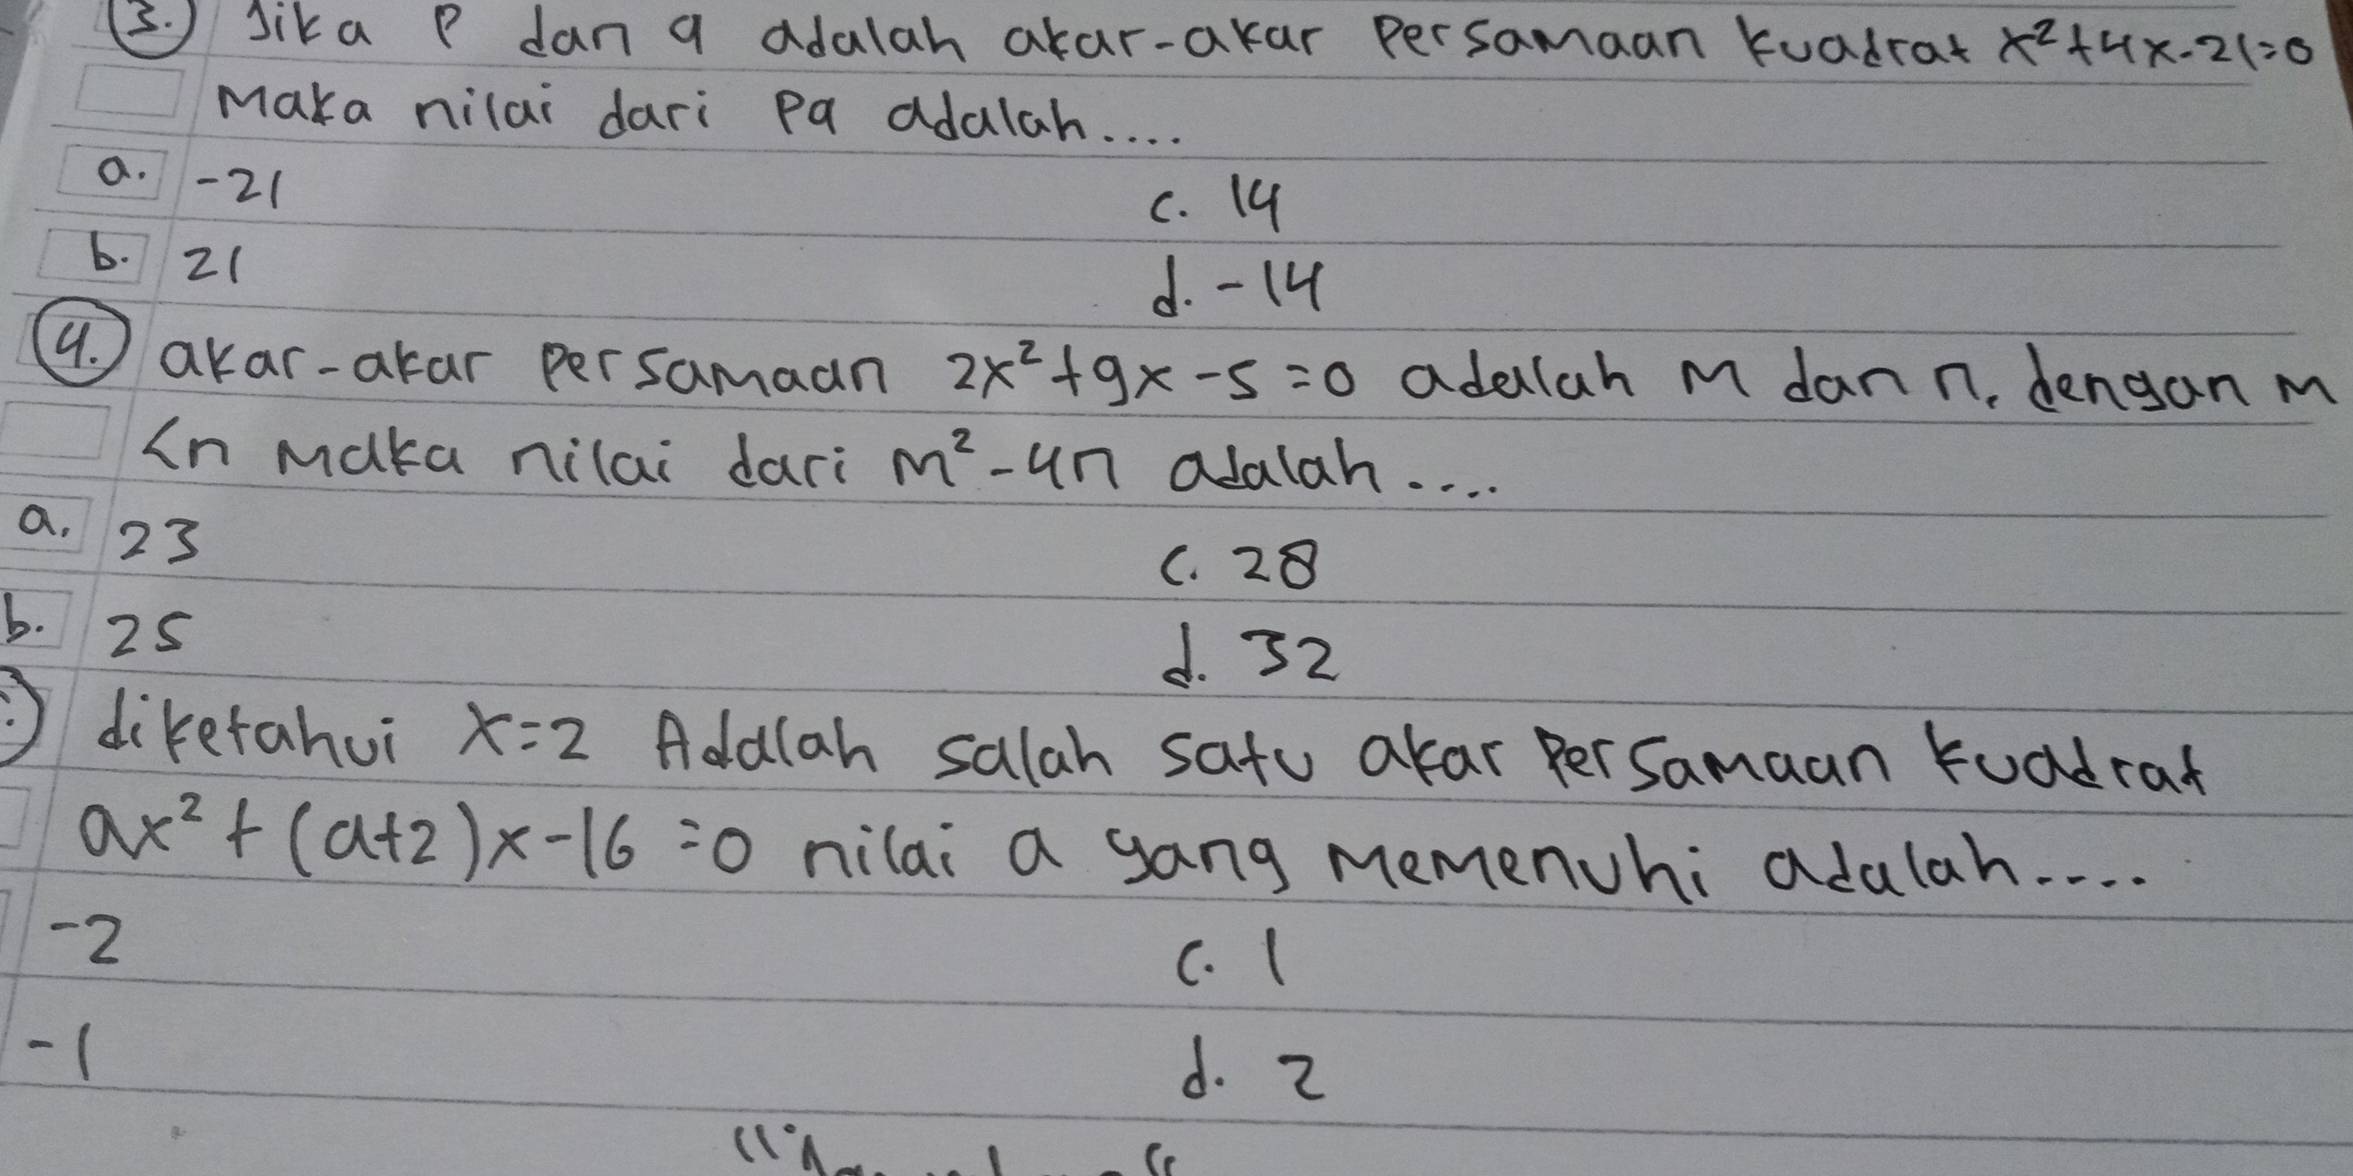 3. Jika P dan q adalah akar-akar Persamaan kuadrat x²+4x-21=0
Maka nilai dari Pq adalah....
a. -21 c. 14
b. 21 d. -14
4. akar-akar Persamaan 2x²+9x-5=0 adalah m dan n, dengan m
<n maka nilai dari m²-4n adalah....
a. 23 c. 28
b. 25 d. 32
diketahui x=2 Adalah salah satu akar Persamaan kuadrat
ax²+(a+2)x-16=0 nilai a yang Memenuhi adalah....
-2 c. 1
-1 d. 2